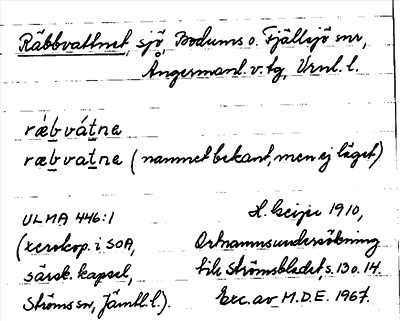 Räbbvattnet, sjö, Bodums o. Fjällsjö snr,
Ångermanl. v. tg, Vrnl. l.
rǽb vátne
ræb vatne (namnet bekant, men ej läget)
ULMA 446:1
(xerokop. i SOA,
särsk. kapsel,
Ströms sn, Jämtl. l.).
H. Geijer 1910,
Ortnamnsundersökning
till Strömsbladet, s. 13 o. 14.
Exc. av M.D.E. 1967.